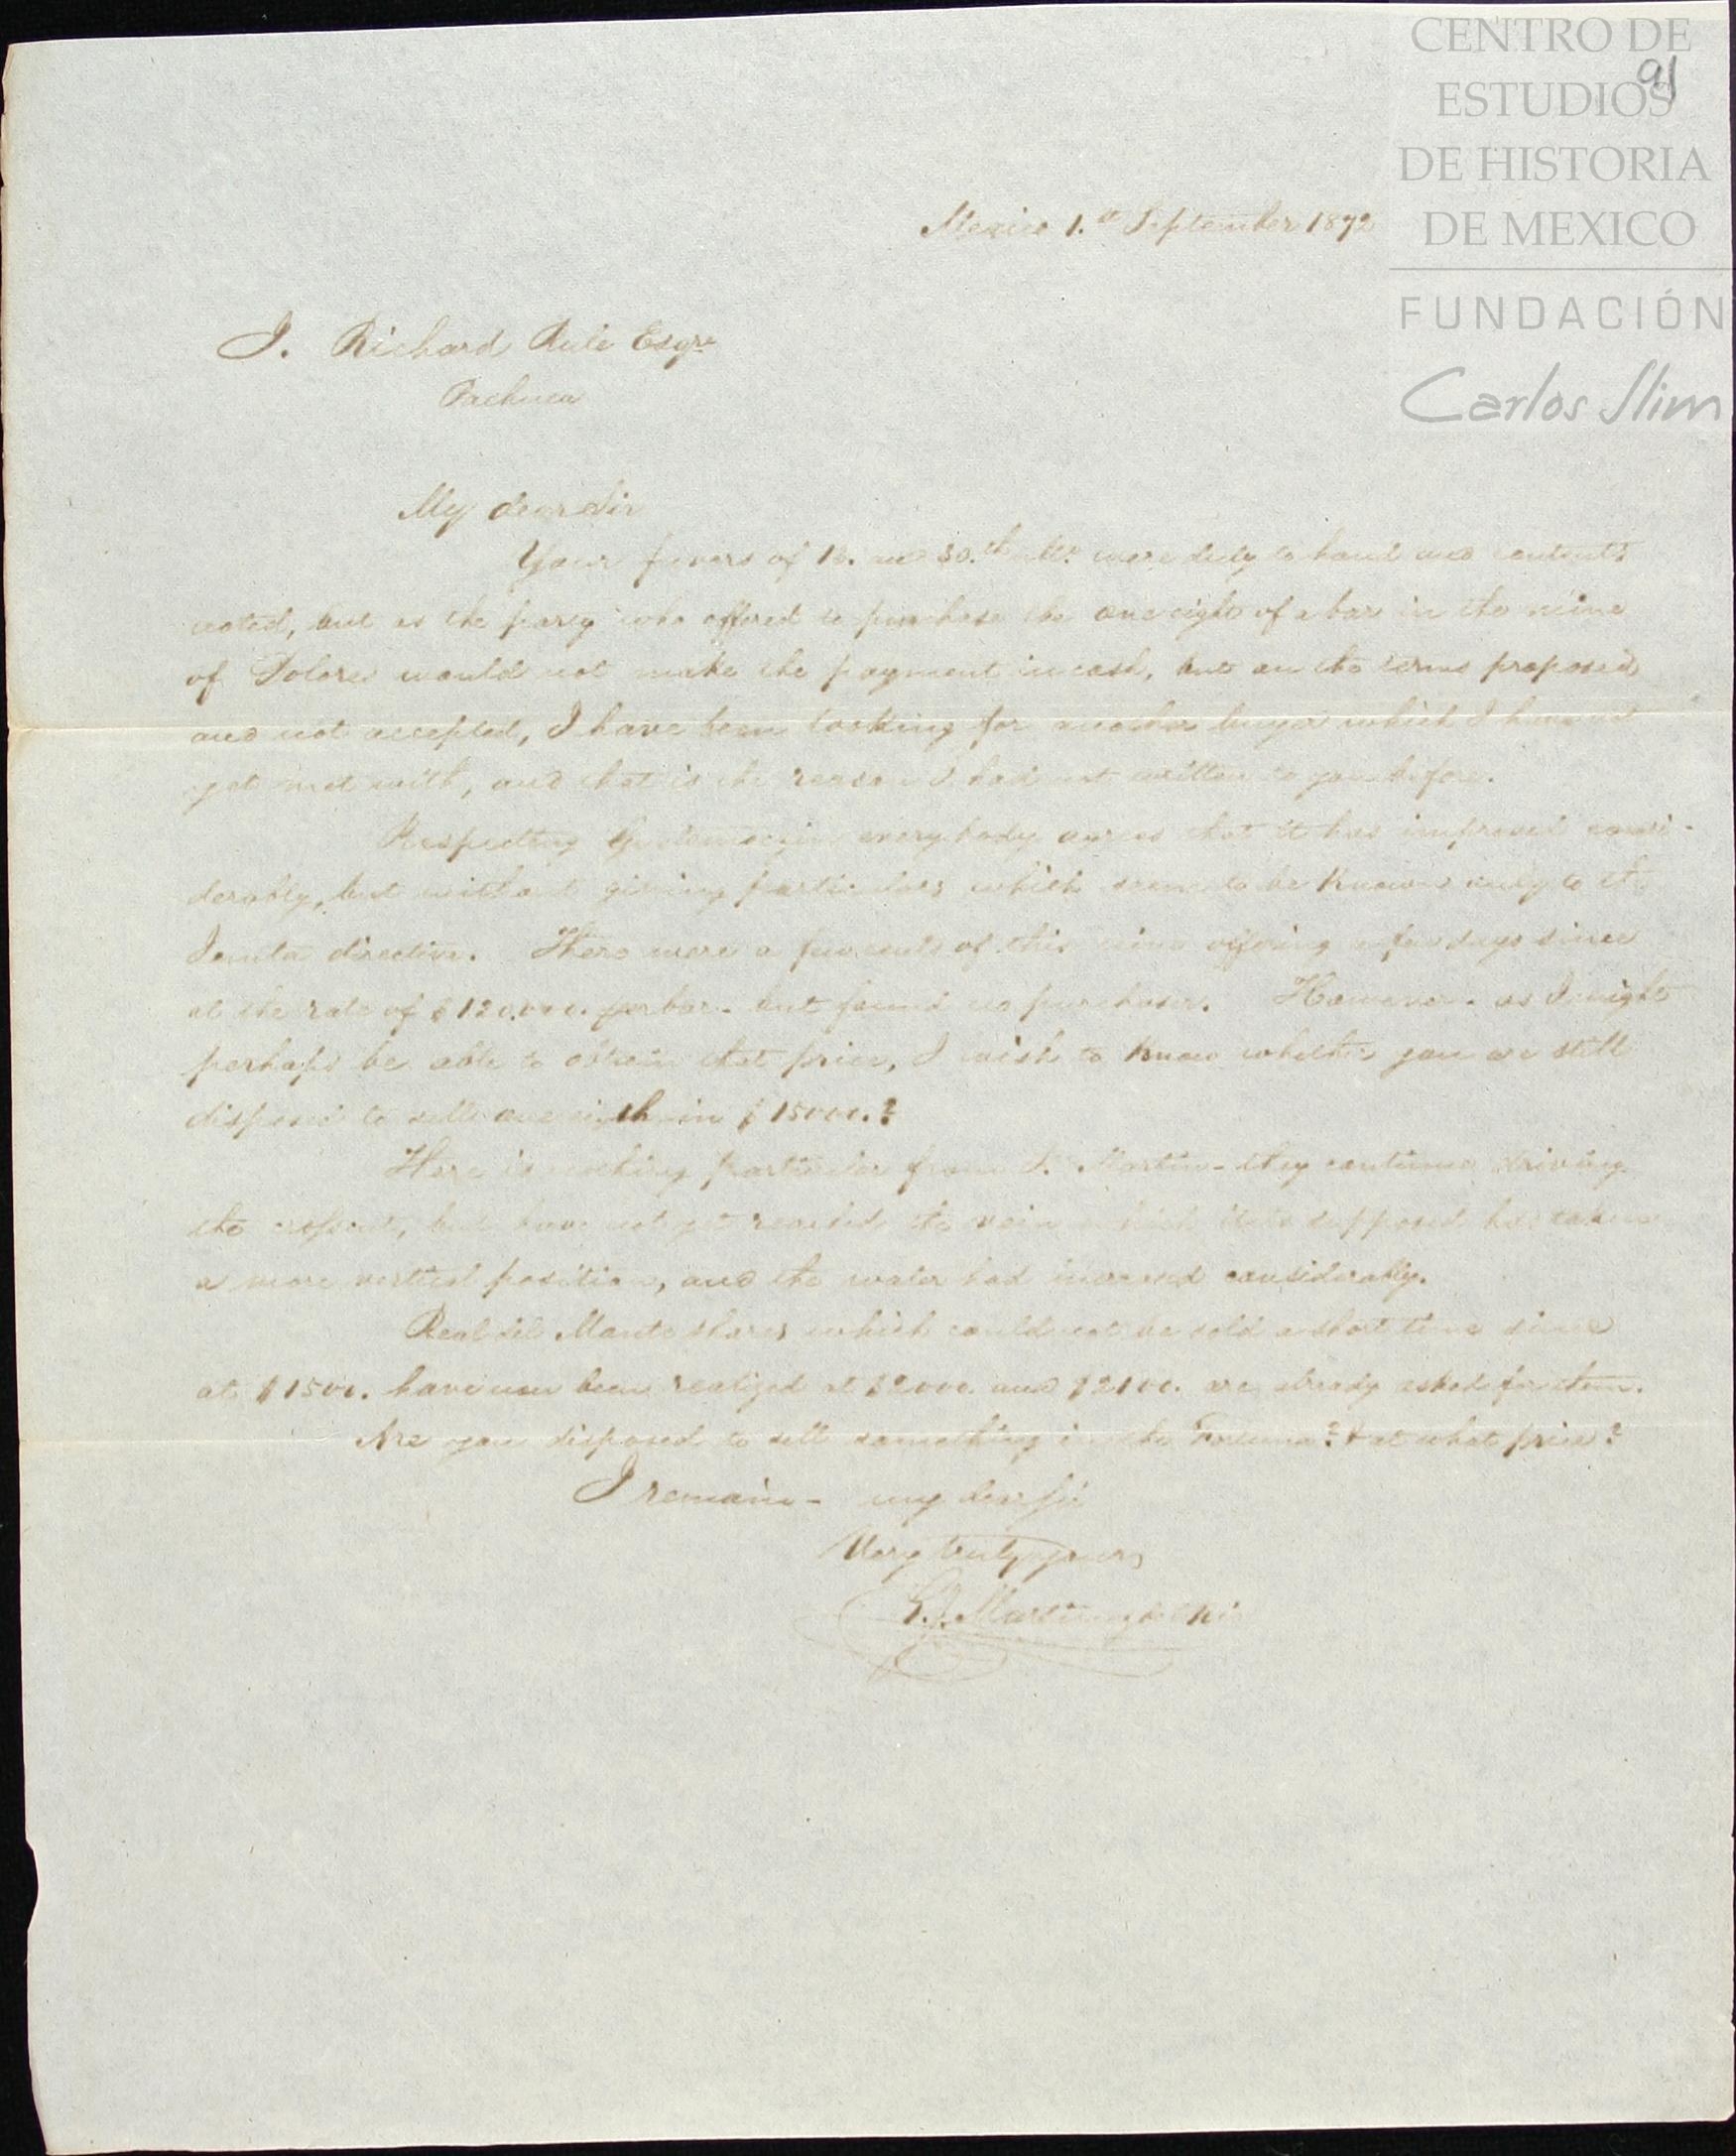 CENTRO DE
ESTUDIOS
DE HISTORIA
DE MEXICO
FUNDACIÓN
Carlos Slim
91
Mexico 1.st September 1872
J. Richard Rule Esqre
Pachuca
My dear Sir
Your favors of 18. and 30.th ulto. were duly to hand and contents
noted, but as the party who offered to purchase the one eight of a bar in the mine
of Dolores would not make the payment in cash, but on the terms proposed
and not accepted, I have been looking for another buyer which I have not
yet met with, and that is the reason I had not written to you before.
Respecting everybody agrees that it has improved consi-
derably, but without giving particulars which seem to be known only to the
Junta directiva. There were a few of this mine offering a few days since
at the rate of $120.000. per bar - but found no purchaser. However - as I might
perhaps be able to obtain that price, I wish to know whether you are still
disposed to sell one eighth in $15000.?
There is nothing particular from S. Martin - they continue driving
the crosscut, but have not yet reached the vein which it is supposed has taken
a more vertical position, and the water had increased considerably.
Real del Monte shares which could not be sold a short time since
at $1500. have now been realized at $2000. and $2100. are already asked for them.
Are you disposed to sell something in the Fortuna? & at what price?
I remain - my dear Sir
Very truly yours